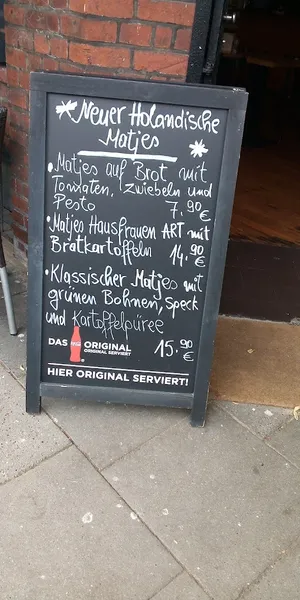 Neuer Holandische
Matjes
• Matjes auf Brot mit
Tomaten, zwiebeln und
Pesto 7.90 €
• Matjes Hausfrauen ART mit
Bratkartoffeln 14.90 €
• Klassischer Matjes mit
grünen Bohnen, speck
und Kartoffelpüree
15.90 €
DAS ORIGINAL
ORIGINAL SERVIERT
HIER ORIGINAL SERVIERT!